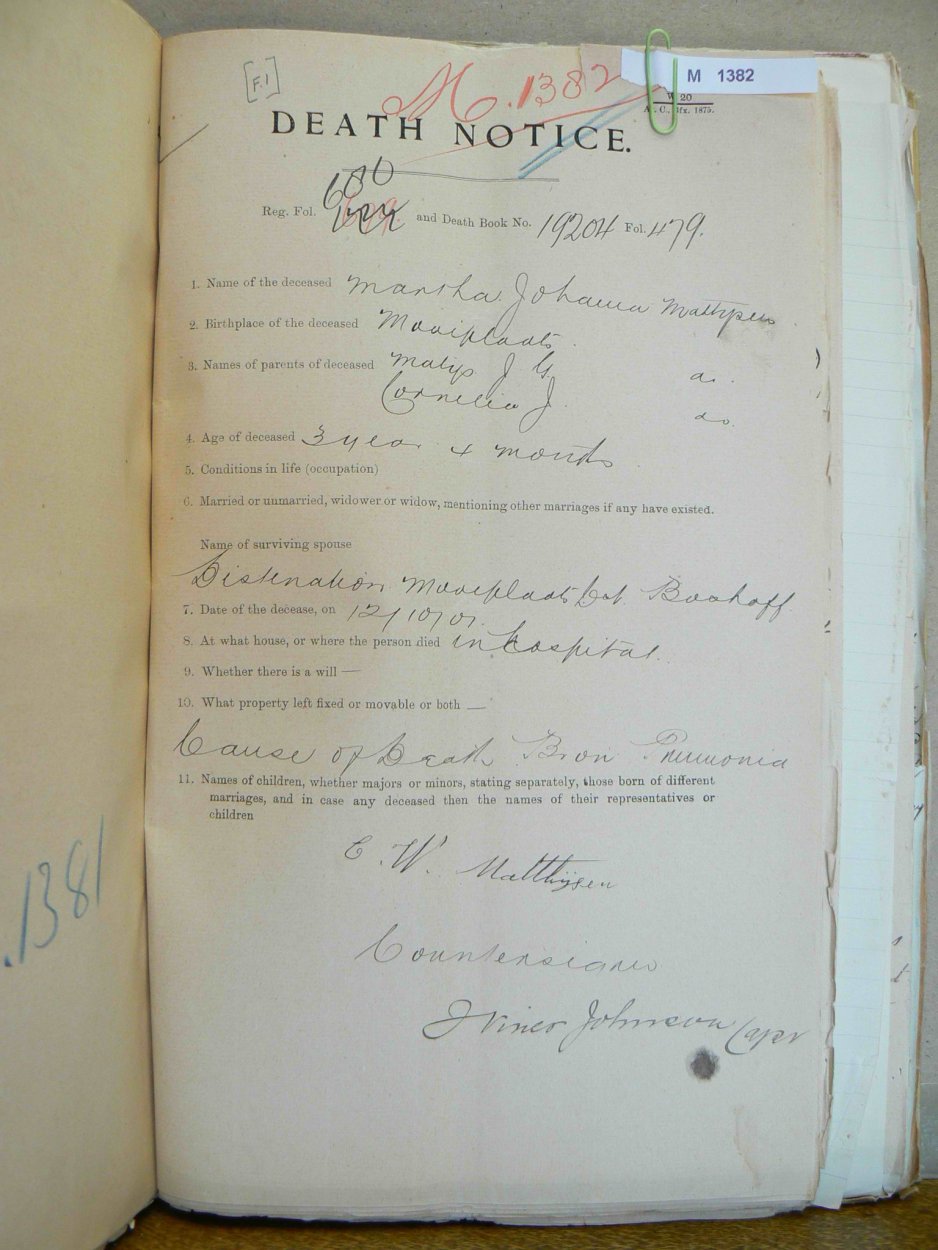 [F.1]
M. 1382
M 1382
W 20
DEATH NOTICE.
Reg. Fol. 680 and Death Book No. 19204 Fol. 479.
1. Name of the deceased Martha Johanna Mattysen
2. Birthplace of the deceased Mooiplaats
3. Names of parents of deceased Matys J G do.
Cornelia J. do.
4. Age of deceased 3 year 4 months
5. Conditions in life (occupation)
6. Married or unmarried, widower or widow, mentioning other marriages if any have existed.
Name of surviving spouse
Distination Mooiplaats Dst Boshoff
7. Date of the decease, on 12/10/01.
8. At what house, or where the person died in hospital.
9. Whether there is a will —
10. What property left fixed or movable or both —
Cause of Death Bron Pneumonia
11. Names of children, whether majors or minors, stating separately, those born of different
marriages, and in case any deceased then the names of their representatives or
children
C. W. Matthysen
Countersigned
Johnson Capt
.1381